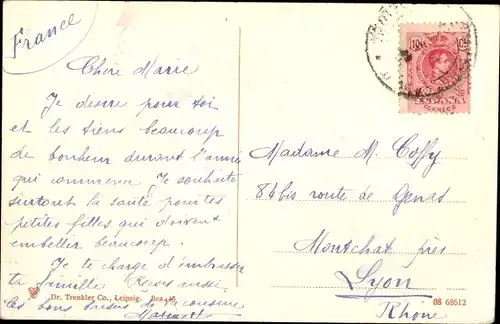 France
Chère Marie
Je désire pour toi
et les tiens beaucoup
de bonheur durant l'année
qui commence. Je souhaite
surtout la santé pour tes
petites filles qui doivent
embellir beaucoup.
Je te charge d'embrasser
ta famille Reçois aussi
les bons baisers de ta cousine
Dr. Trenkler Co., Leipzig.
Madame M. Coffy
84 bis route de Genas
Montchat près
Lyon
Rhône
08 68612
CORREOS